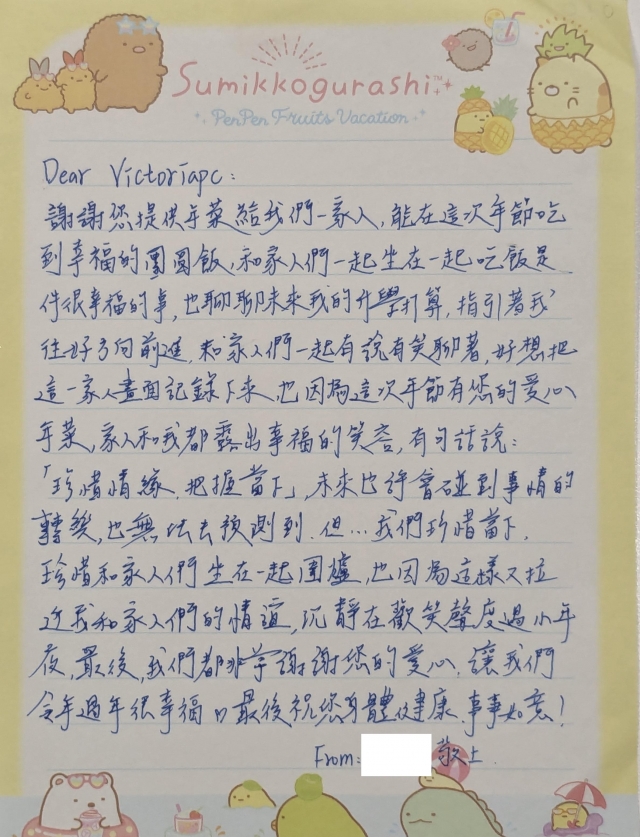 Sumikkogurashi™
PenPen Fruits Vacation
Dear Victoriapc:
謝謝您提供年菜給我們一家人,能在這次年節吃
到幸福的團圓飯,和家人們一起坐在一起吃飯是
件很幸福的事,也聊聊未來我的升學打算,指引著我
往好方向前進,和家人們一起有說有笑聊著,好想把
這一家人畫面記錄下來,也因為這次年節有您的愛心
年菜,家人和我都露出幸福的笑容,有句話說:
「珍惜情緣,把握當下」,未來也許會碰到事情的
轉變,也無法去預測到.但…我們珍惜當下,
珍惜和家人們坐在一起圍爐,也因為這樣又拉
近我和家人們的情誼,沉靜在歡笑聲度過小年
夜,最後,我們都非常謝謝您的愛心,讓我們
今年過年很幸福。最後祝您身體健康,事事如意!
From: 敬上.